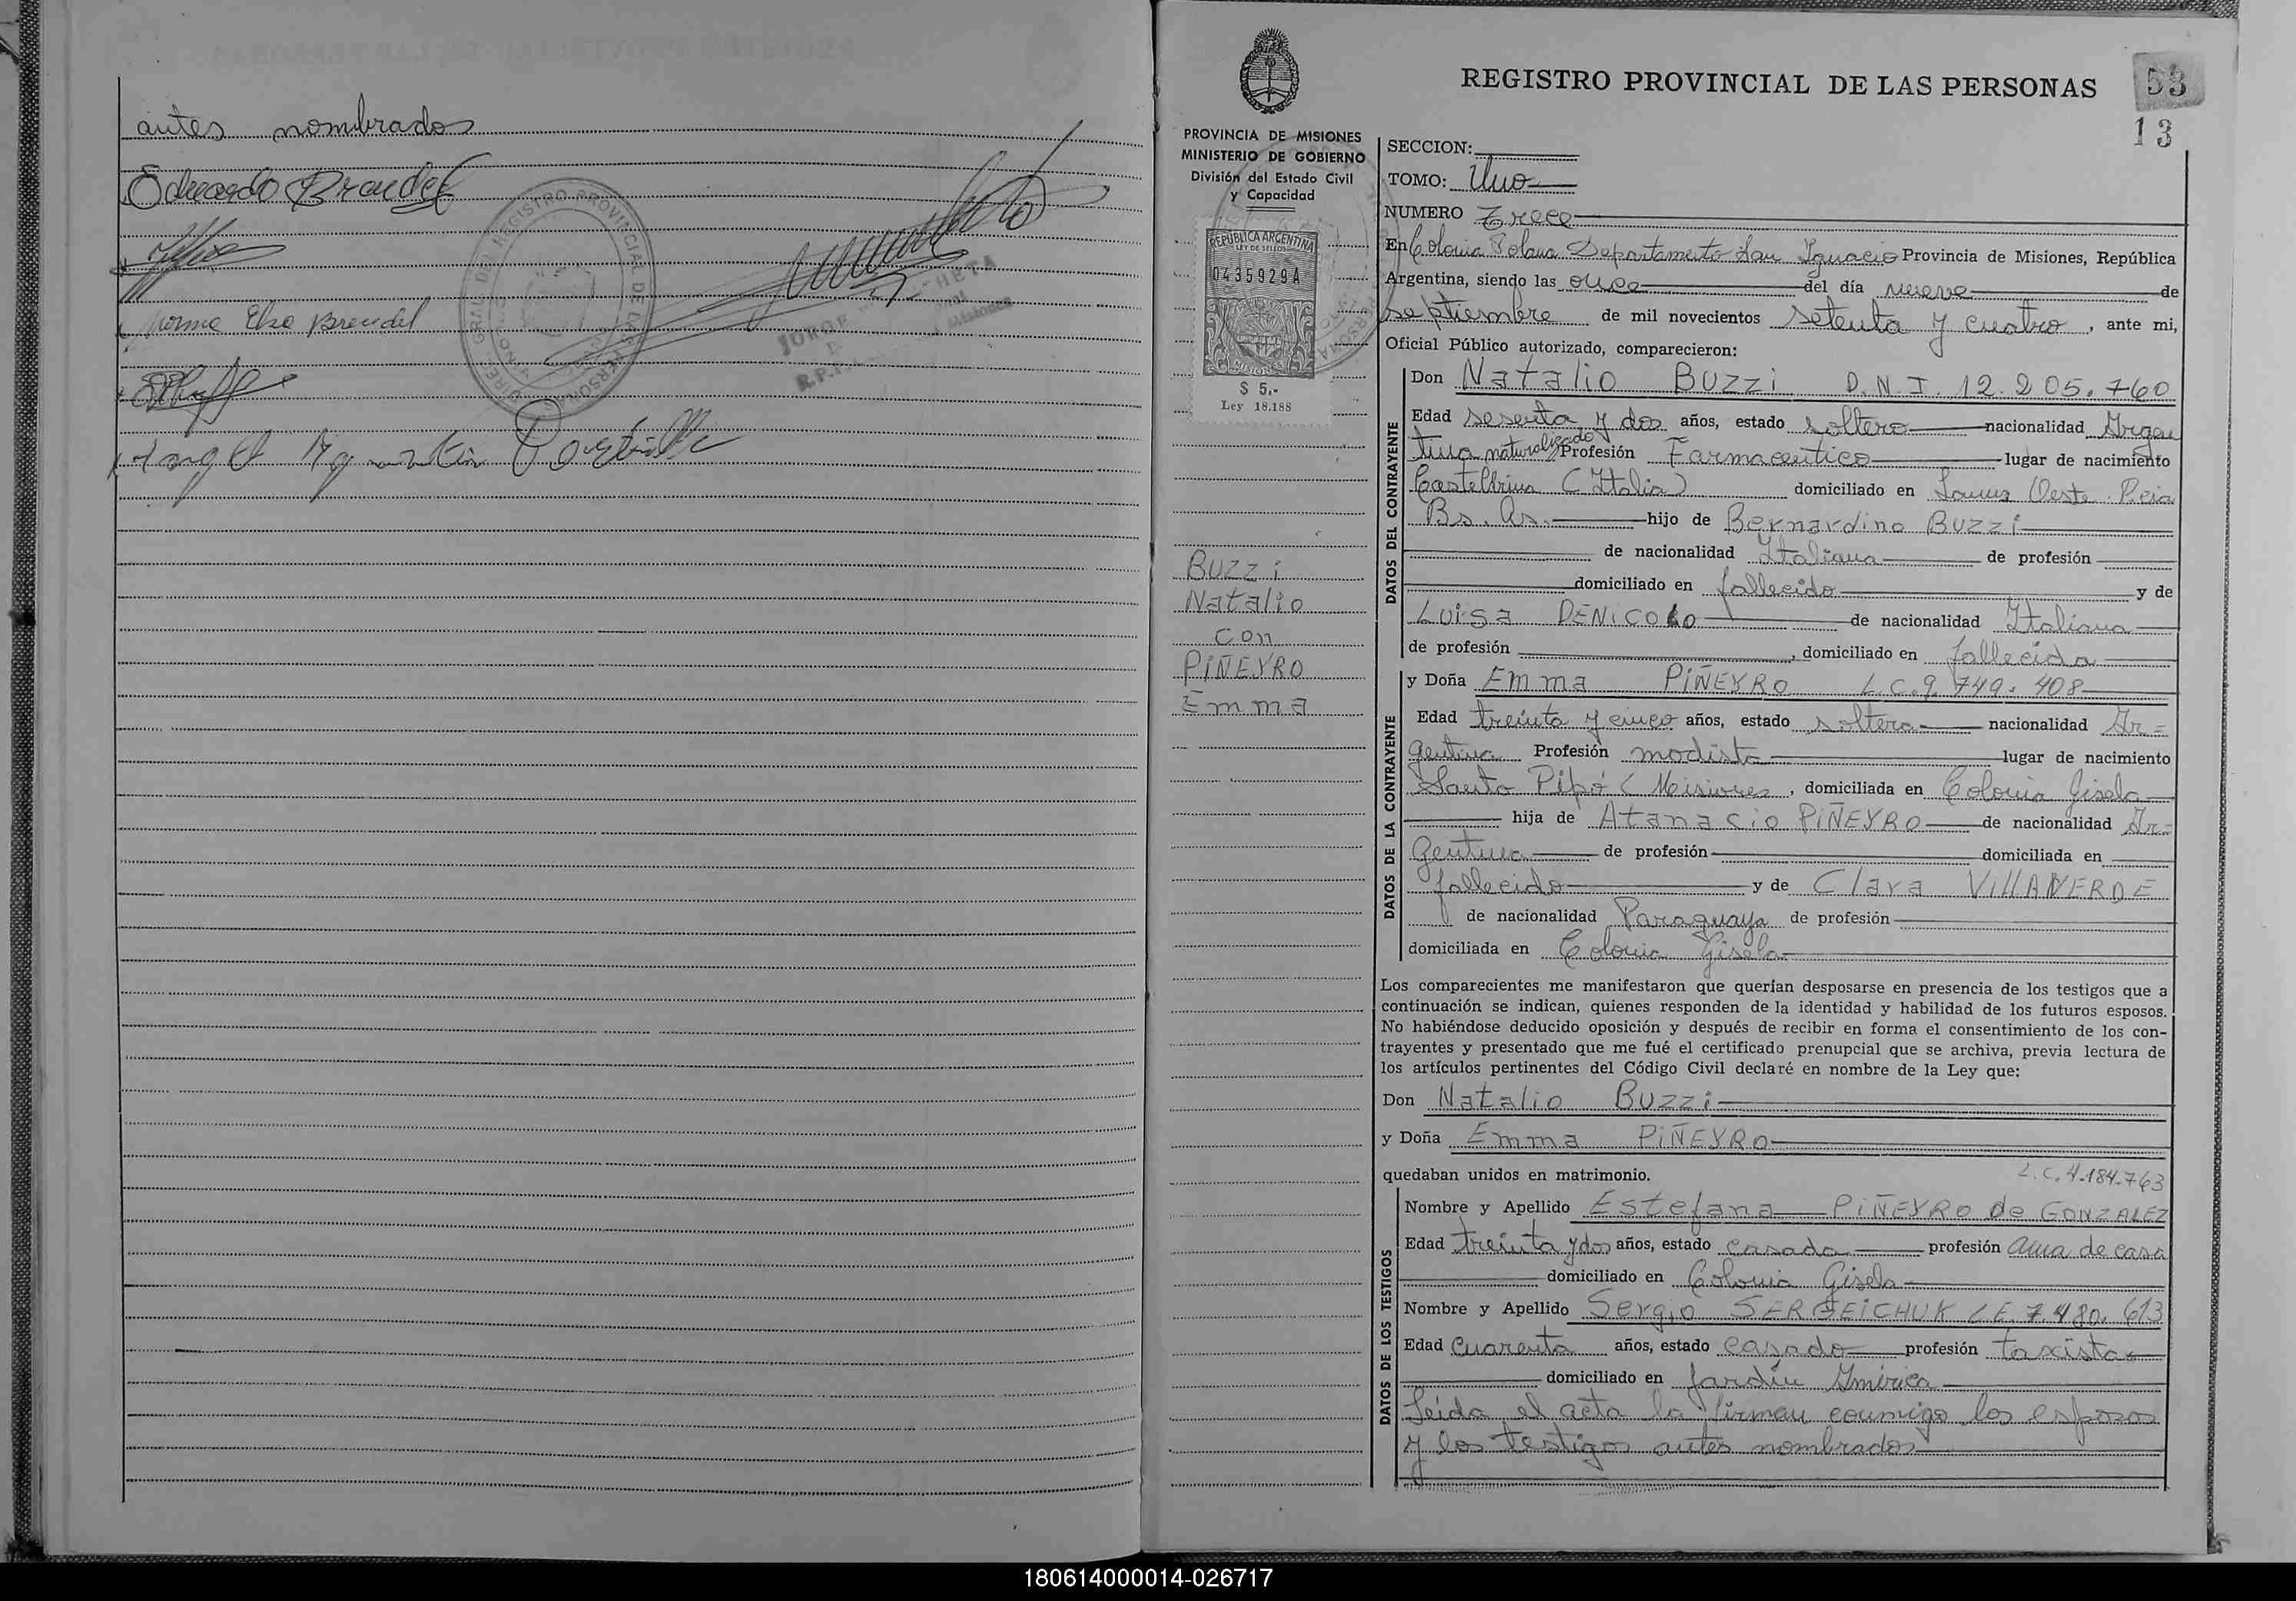 antes nombrados
Eduardo Brendel
Norma Elsa Brendel
Angel Agustin
REGISTRO PROVINCIAL DE LAS PERSONAS
53
13
PROVINCIA DE MISIONES
MINISTERIO DE GOBIERNO
División del Estado Civil
y Capacidad
REPUBLICA ARGENTINA
LEY DE SELLOS
0435929A
MISIONES
$ 5.-
Ley 18.188
Buzzi
Natalio
con
PIÑEYRO
Emma
SECCION:
TOMO: Uno
NUMERO Trece
En Colonia Polana Departamento San Ignacio Provincia de Misiones, República
Argentina, siendo las once del día nueve de
septiembre de mil novecientos setenta y cuatro, ante mi,
Oficial Público autorizado, comparecieron:
DATOS DEL CONTRAYENTE
Don Natalio Buzzi D.N.I. 12.205.760
Edad sesenta y dos años, estado soltero nacionalidad Argen
tina naturalizado Profesión Farmaceutico lugar de nacimiento
(Italia) domiciliado en Lanus Oeste Pcia
Bs. As. hijo de Bernardino Buzzi
de nacionalidad Italiana de profesión
domiciliado en fallecido y de
Luisa DENICOLO de nacionalidad Italiana
de profesión , domiciliado en fallecida
DATOS DE LA CONTRAYENTE
y Doña Emma PIÑEYRO L.C. 9.749.408
Edad treinta y cinco años, estado soltera nacionalidad Ar=
gentina Profesión modista lugar de nacimiento
Santo Pipó (Misiones, domiciliada en Colonia Gisela
hija de Atanacio PIÑEYRO de nacionalidad Ar=
gentina de profesión domiciliada en
fallecido y de Clara VillAVERDE
de nacionalidad Paraguaya de profesión
domiciliada en Colonia Gisela
Los comparecientes me manifestaron que querían desposarse en presencia de los testigos que a
continuación se indican, quienes responden de la identidad y habilidad de los futuros esposos.
No habiéndose deducido oposición y después de recibir en forma el consentimiento de los con-
trayentes y presentado que me fué el certificado prenupcial que se archiva, previa lectura de
los artículos pertinentes del Código Civil declaré en nombre de la Ley que:
Don Natalio Buzzi
y Doña Emma PIÑEYRO
quedaban unidos en matrimonio.
L.C. 4.184.763
DATOS DE LOS TESTIGOS
Nombre y Apellido Estefana PIÑEYRO de GONZALEZ
Edad treinta y dos años, estado casada profesión ama de casa
domiciliado en Colonia Gisela
Nombre y Apellido Sergio SERGEICHUK L.E. 7.480.613
Edad cuarenta años, estado casado profesión taxista
domiciliado en Jardín América
Leída el acta la firman conmigo los esposos
y los testigos antes nombrados
180614000014-026717